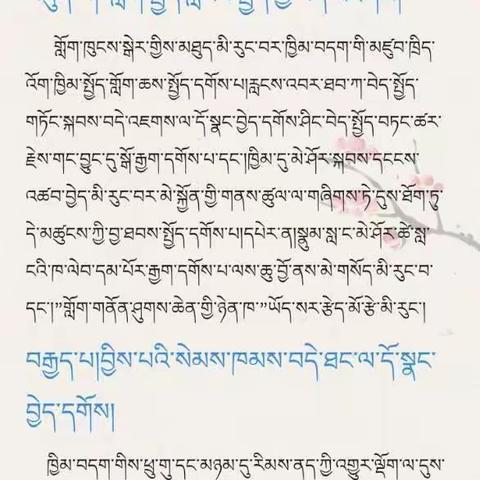 གློག་ཁུངས་སྒེར་གྱིས་མཐུད་མི་རུང་བར་ཁྱིམ་བདག་གི་མཛུབ་ཁྲིད་
འོག་ཁྱིམ་སྤྱོད་གློག་ཆས་སྤྱོད་དགོས་པ།རླངས་འབར་ཐབ་ཀ་བེད་སྤྱོད་
གཏོང་སྐབས་བདེ་འཇགས་ལ་དོ་སྣང་བྱེད་དགོས་ཤིང་བེད་སྤྱོད་བཏང་ཚར་
རྗེས་གང་བྱུང་དུ་སྒོ་རྒྱག་དགོས་པ་དང་།ཁྱིམ་དུ་མེ་ཤོར་སྐབས་དངངས་
འཚབ་བྱེད་མི་རུང་བར་མེ་སྐྱོན་གྱི་གནས་ཚུལ་ལ་གཞིགས་ཏེ་དུས་ཐོག་ཏུ་
དེ་མཚུངས་ཀྱི་བྱ་ཐབས་སྤྱོད་དགོས་པ།དཔེར་ན།སྣུམ་སླ་ང་མེ་ཤོར་ཚེ་སླ་
ངའི་ཁ་ལེབ་དམ་པོར་རྒྱག་དགོས་པ་ལས་ཆུ་བྱོ་ནས་མེ་གསོད་མི་རུང་བ་
དང་།”གློག་གནོན་ཤུགས་ཆེན་གྱི་ཉེན་ཁ་”ཡོད་སར་རྩེད་མོ་རྩེ་མི་རུང་།
བརྒྱད་པ།བྱིས་པའི་སེམས་ཁམས་བདེ་ཐང་ལ་དོ་སྣང་
བྱེད་དགོས།
ཁྱིམ་བདག་གིས་ཕྲུ་གུ་དང་མཉམ་དུ་རིམས་ནད་ཀྱི་འགྱུར་ལྡོག་ལ་དུས་